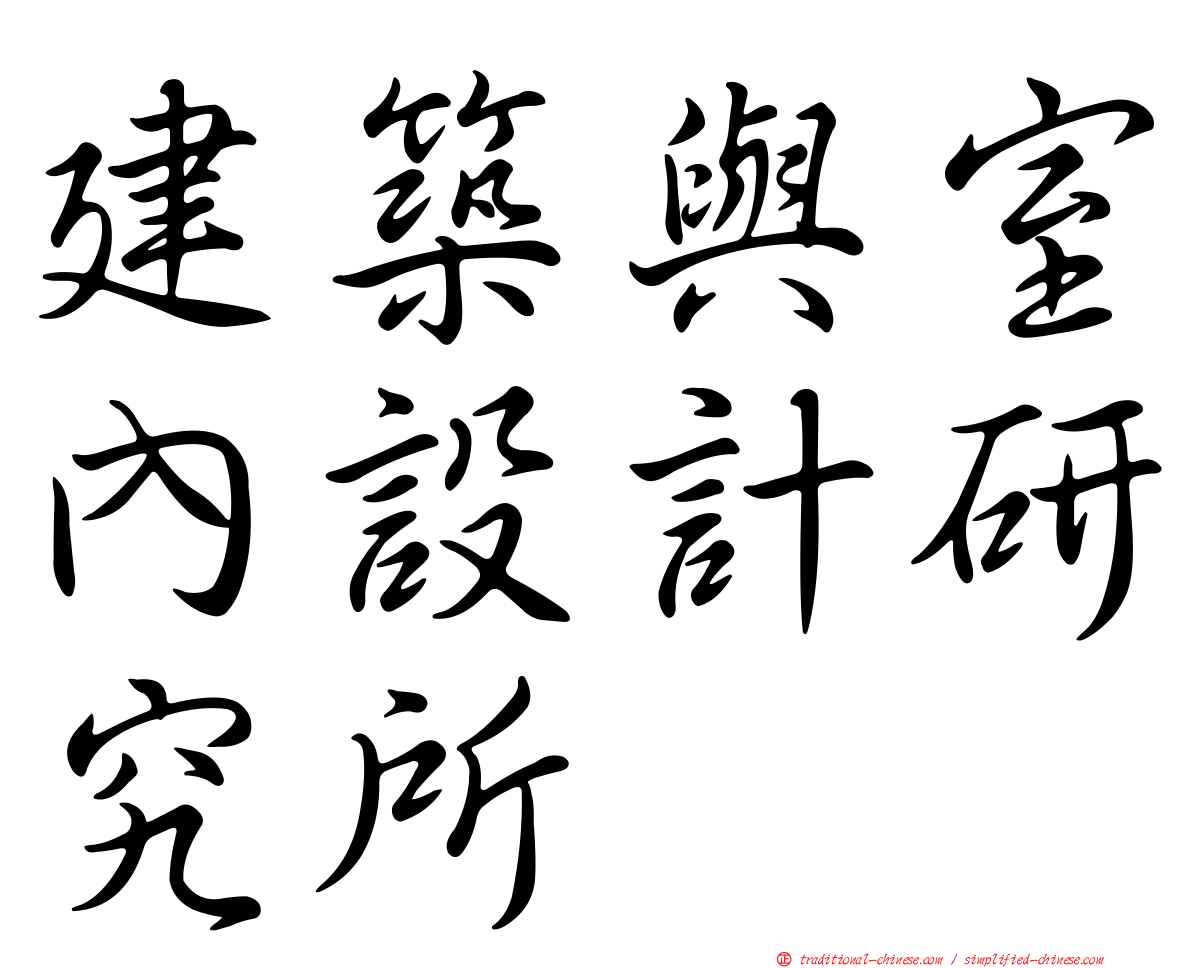 建築與室
內設計研
究所
正 traditional-chinese.com / simplified-chinese.com